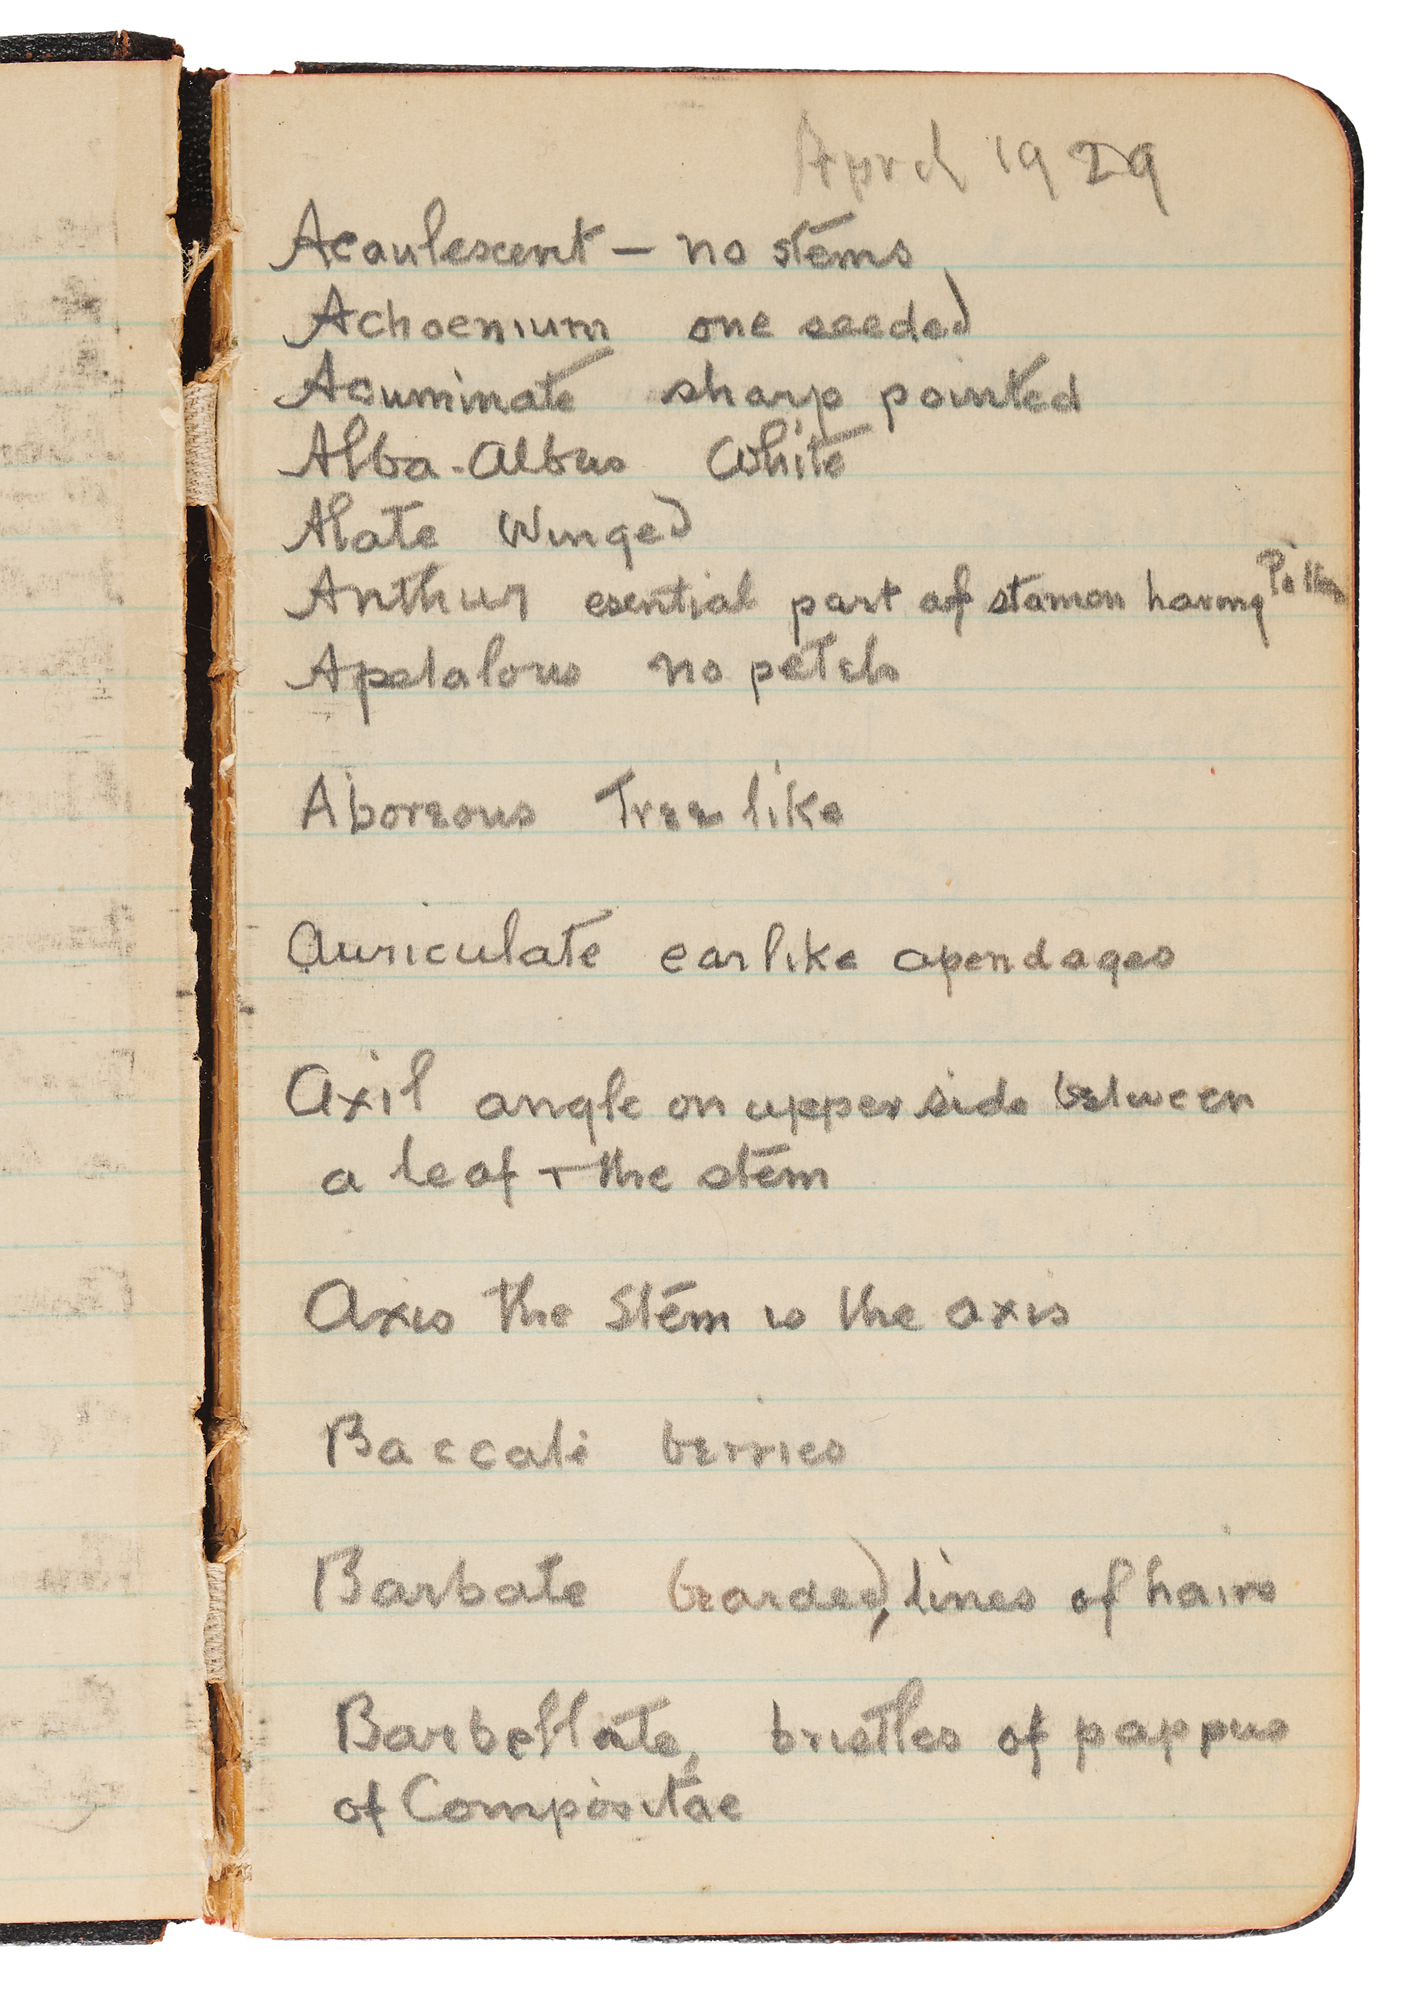 April 1929
Acaulescent — no stems
Achoenium one seeded
Acuminate sharp pointed
Alba-albus White
Alate Winged
Anthur esential part of stamen having Pollen
Apetalous no petals
Aboreous Tree like
Auriculate ear like apendages
Axil angle on upper side between
a leaf + the stem
Axis the Stem is the axis
Baccati berries
Barbate bearded, lines of hairs
Barbellate, bristles of pappus
of Compositae